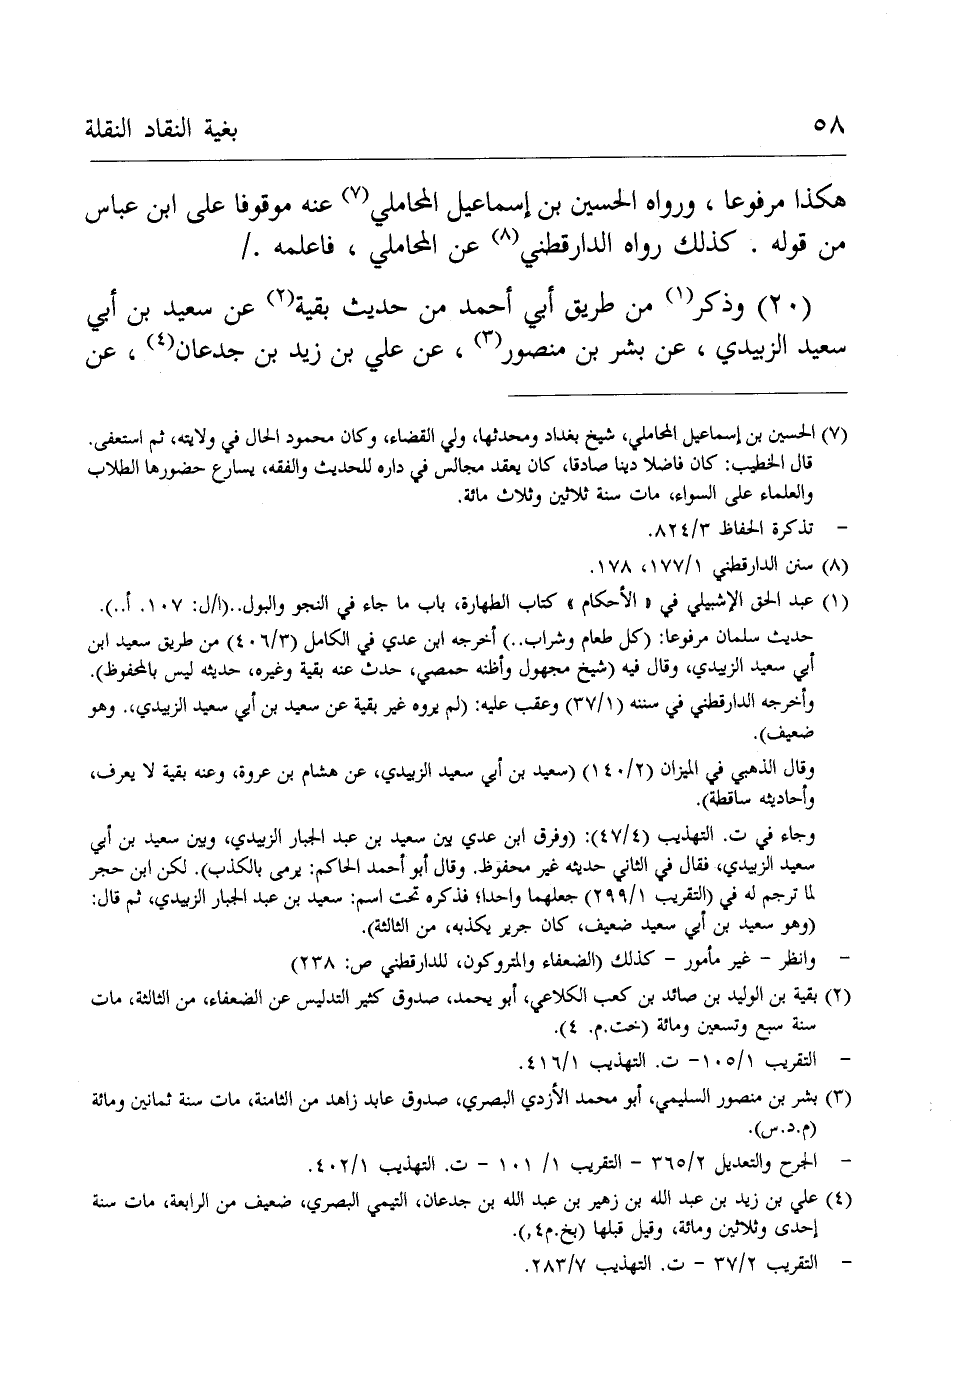 ٥٨ بغية النقاد النقلة
هكذا مرفوعا ، ورواه الحسين بن إسماعيل المحاملي(٧) عنه موقوفا على ابن عباس
من قوله . كذلك رواه الدارقطني(٨) عن المحاملي ، فاعلمه ./
(٢٠) وذكر(١) من طريق أبي أحمد من حديث بقية(٢) عن سعيد بن أبي
سعيد الزبيدي ، عن بشر بن منصور(٣) ، عن علي بن زيد بن جدعان(٤) ، عن
(٧) الحسين بن إسماعيل المحاملي، شيخ بغداد ومحدثها، ولي القضاء، وكان محمود الحال في ولايته، ثم استعفى.
قال الخطيب: كان فاضلا دينا صادقا، كان يعقد مجالس في داره للحديث والفقه، يسارع حضورها الطلاب
والعلماء على السواء، مات سنة ثلاثين وثلاث مائة.
- تذكرة الحفاظ ٨٢٤/٣.
(٨) سنن الدارقطني ١٧٧/١، ١٧٨.
(١) عبد الحق الإشبيلي في « الأحكام » كتاب الطهارة، باب ما جاء في النجو والبول..(١/ل: ١٠٧. أ..).
حديث سلمان مرفوعا: (كل طعام وشراب..) أخرجه ابن عدي في الكامل (٤٠٦/٣) من طريق سعيد ابن
أبي سعيد الزبيدي، وقال فيه (شيخ مجهول وأظنه حمصي، حدث عنه بقية وغيره، حديثه ليس بالمحفوظ).
وأخرجه الدارقطني في سننه (٣٧/١) وعقب عليه: (لم يروه غير بقية عن سعيد بن أبي سعيد الزبيدي،. وهو
ضعيف).
وقال الذهبي في الميزان (١٤٠/٢) (سعيد بن أبي سعيد الزبيدي، عن هشام بن عروة، وعنه بقية لا يعرف،
وأحاديثه ساقطة).
وجاء في ت. التهذيب (٤٧/٤): (وفرق ابن عدي بين سعيد بن عبد الجبار الزبيدي، وبين سعيد بن أبي
سعيد الزبيدي، فقال في الثاني حديثه غير محفوظ. وقال أبو أحمد الحاكم: يرمى بالكذب). لكن ابن حجر
لما ترجم له في (التقريب ٢٩٩/١) جعلهما واحدا؛ فذكره تحت اسم: سعيد بن عبد الجبار الزبيدي، ثم قال:
(وهو سعيد بن أبي سعيد ضعيف، كان جرير يكذبه، من الثالثة).
- وانظر - غير مأمور - كذلك (الضعفاء والمتروكون، للدارقطني ص: ٢٣٨)
(٢) بقية بن الوليد بن صائد بن كعب الكلاعي، أبو يحمد، صدوق كثير التدليس عن الضعفاء، من الثالثة، مات
سنة سبع وتسعين ومائة (خت.م. ٤).
- التقريب ١٠٥/١- ت. التهذيب ٤١٦/١.
(٣) بشر بن منصور السليمي، أبو محمد الأزدي البصري، صدوق عابد زاهد من الثامنة، مات سنة ثمانين ومائة
(م.د.س).
- الجرح والتعديل ٣٦٥/٢ - التقريب ١/ ١٠١ - ت. التهذيب ٤٠٢/١.
(٤) علي بن زيد بن عبد الله بن زهير بن عبد الله بن جدعان، التيمي البصري، ضعيف من الرابعة، مات سنة
إحدى وثلاثين ومائة، وقيل قبلها (بخ.م٤,).
- التقريب ٣٧/٢ - ت. التهذيب ٢٨٣/٧.